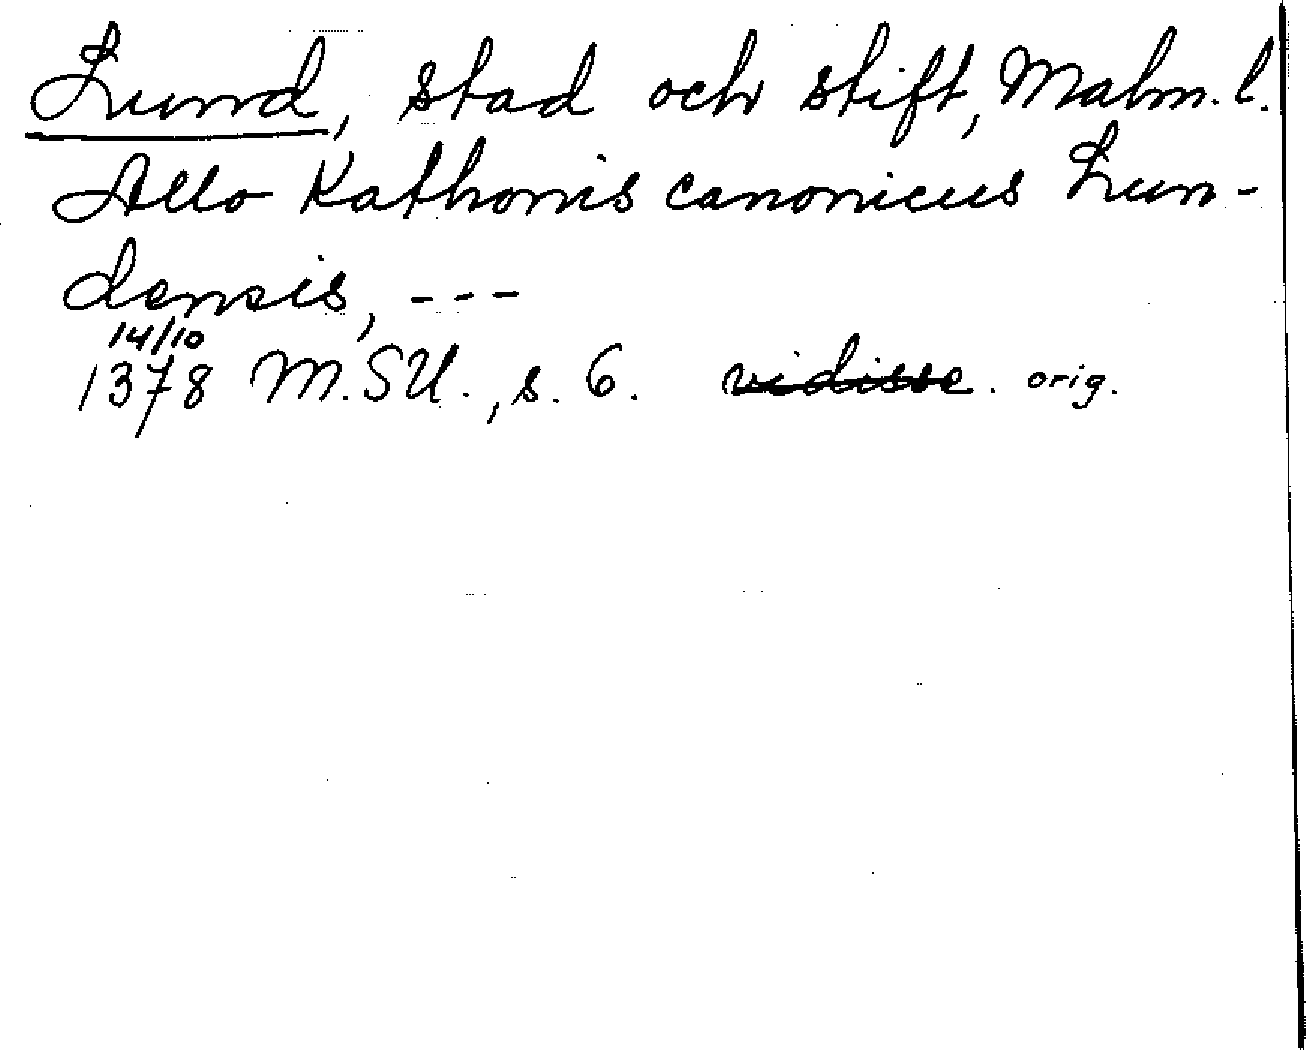 Lund, stad och stift, Malm. l.
Allo Kathonis canonicus Lun-
densis, ---
14/10
1378 M.SU., s. 6. vidisse. orig.